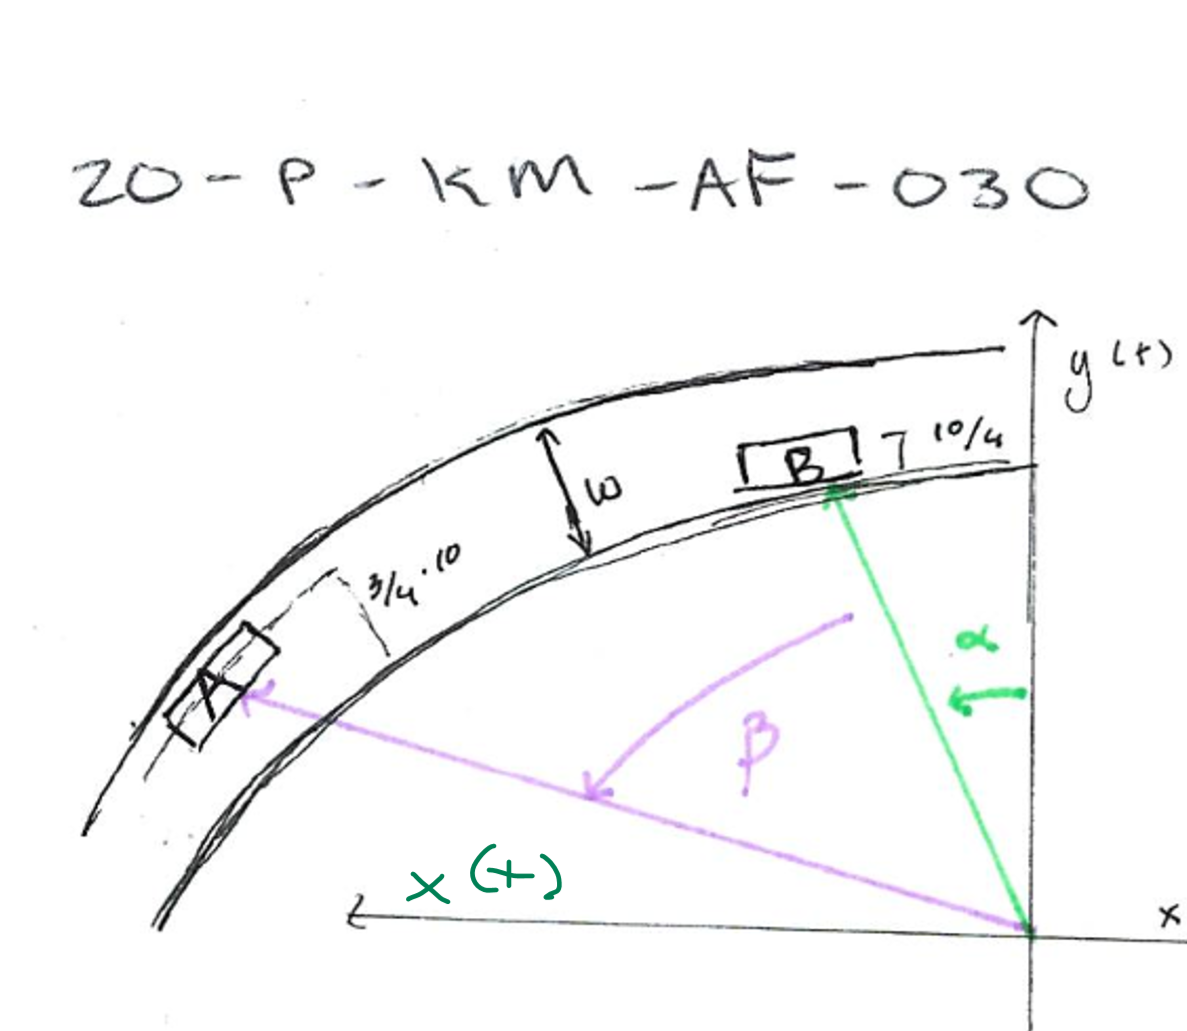 20-P-KM-AF-030
y(+)
10/4
B
w
3/4·10
A
α
β
x(+)
x